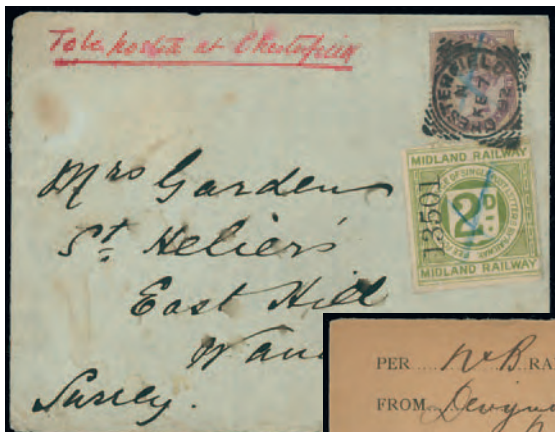 To be posted at Chesterfield
CHESTERFIELD
MIDLAND RAILWAY
13501
2D
MIDLAND RAILWAY
Mrs Garden
St Helier's
East Hill
Wan
Surrey.
PER N B RA
FROM